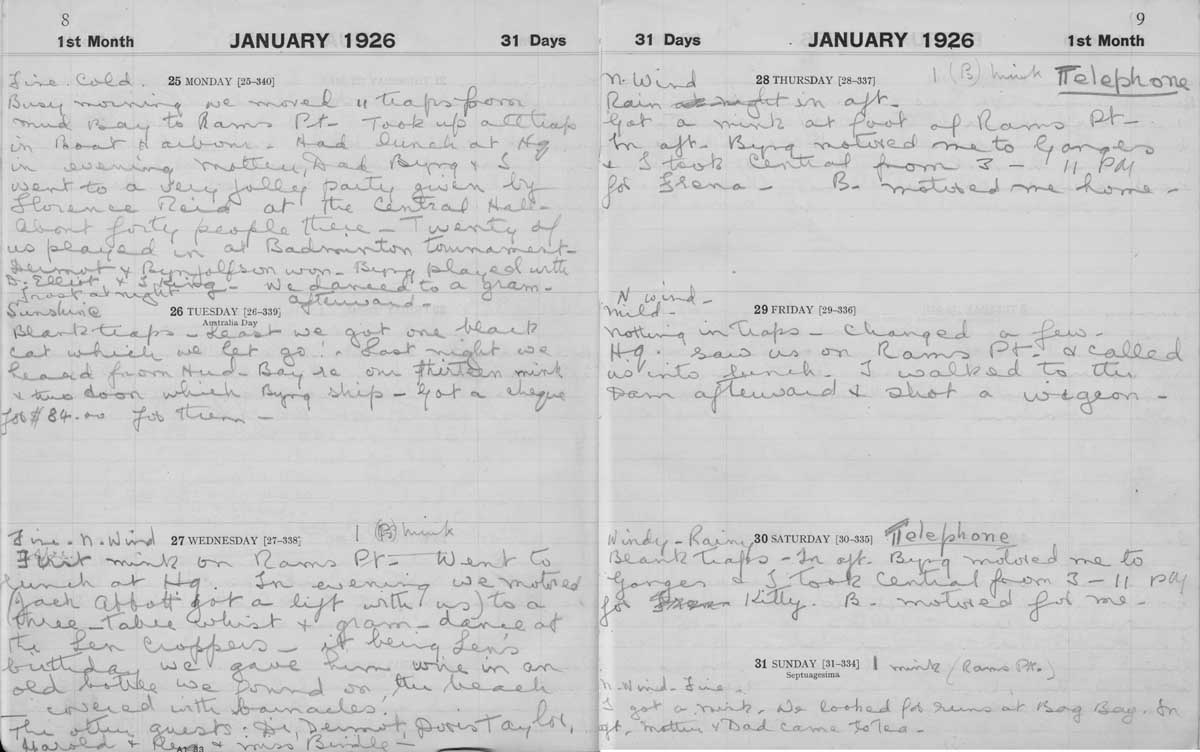 8
1st Month JANUARY 1926 31 Days
Fine. Cold. 25 MONDAY [25-340]
Busy morning we moved 11 traps from
Mud Bay to Rams Pt- Took up all traps
in Boat Harbour. Had lunch at Hq
in evening Mother, Dad Byng & I
went to a very jolly party given by
Florence Reid at the Central Hall-
About forty people there - Twenty of
us played in a Badminton tournament-
Dermot & won- Byng played with
D. Elliot & I King- we danced to a gram-
Frost at night afterward-
Sunshine 26 TUESDAY [26-339]
Australia Day
Blank traps - Least we got one black
cat which we let go! - Last night we
heard from Hud- Bay re our thirteen mink
& two coon which Byng ship- Got a cheque
for $84.00 for them-
Fine- N. Wind 27 WEDNESDAY [27-338] 1 (B) mink
mink on Rams Pt- Went to
lunch at Hq. In evening we motored
(Jack Abbott got a lift with us) to a
three-table whist & gram-dance at
the Len Croppers- it being Len's
birthday we gave him wine in an
old bottle we found on the beach
covered with barnacles!
The other guests: Di, Dermot, Doris Taylor,
Harold & & Miss -
9
31 Days JANUARY 1926 1st Month
N. Wind 28 THURSDAY [28-337] 1 (B) mink Telephone
Rain at night in aft-
Got a mink at foot of Rams Pt-
In aft- Byng motored me to Ganges
& I took Central from 3 - 11 PM
for Irena- B- motored me home-
N wind-
Mild- 29 FRIDAY [29-336]
Nothing in traps- Changed a few-
Hq. saw us on Rams Pt- & called
us into lunch- I walked to the
Dam afterward & shot a wigeon-
Windy- Rainy 30 SATURDAY [30-335] Telephone
Blank traps- In aft. Byng motored me to
Ganges & I took Central from 3-11 PM
for Kitty. B- motored for me-
31 SUNDAY [31-334] 1 mink (Rams Pt.)
Septuagesima
N- Wind- Fine-
I got a mink. We looked for runs at Bog Bay. In
aft, Mother & Dad came to tea-